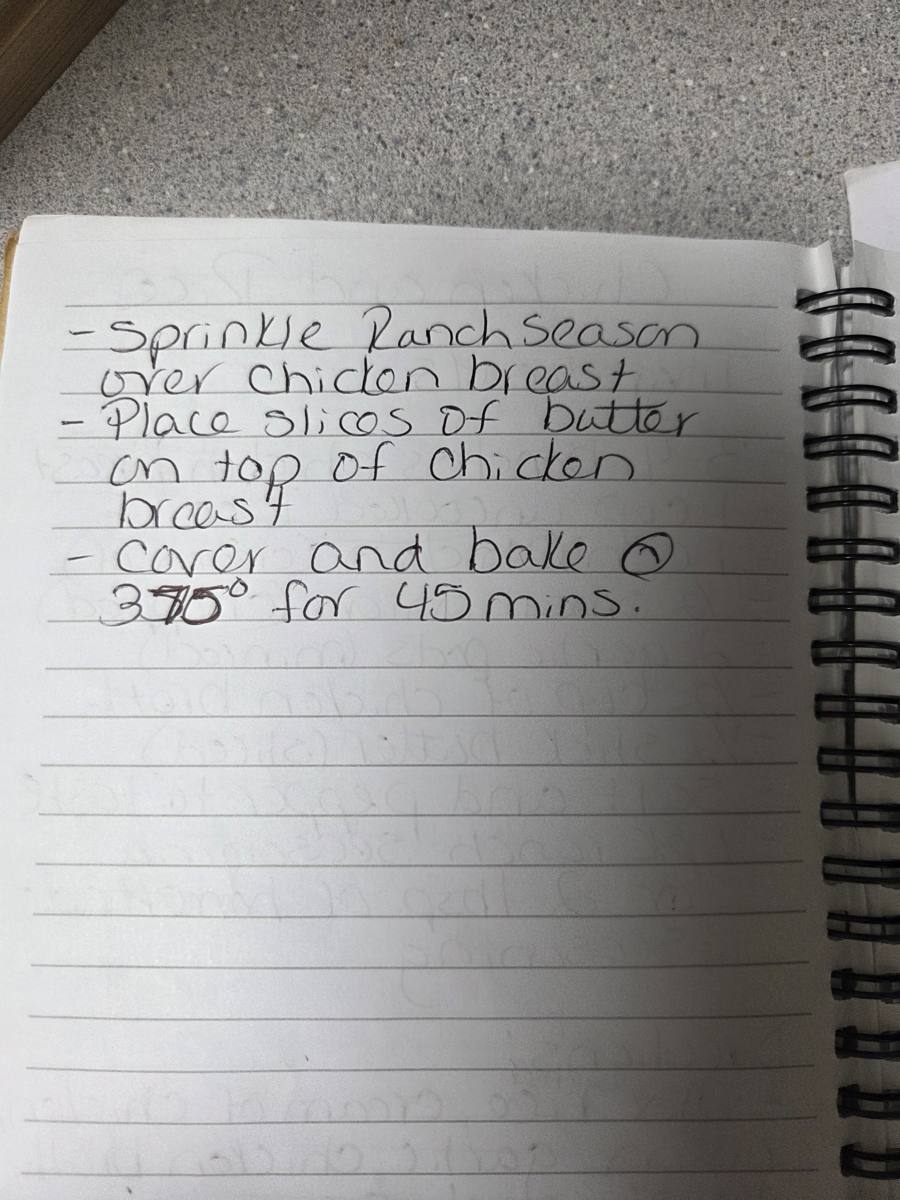 - Sprinkle Ranch Season
over chicken breast
- Place slices of butter
on top of chicken
breast
- Cover and bake @
375° for 45 mins.